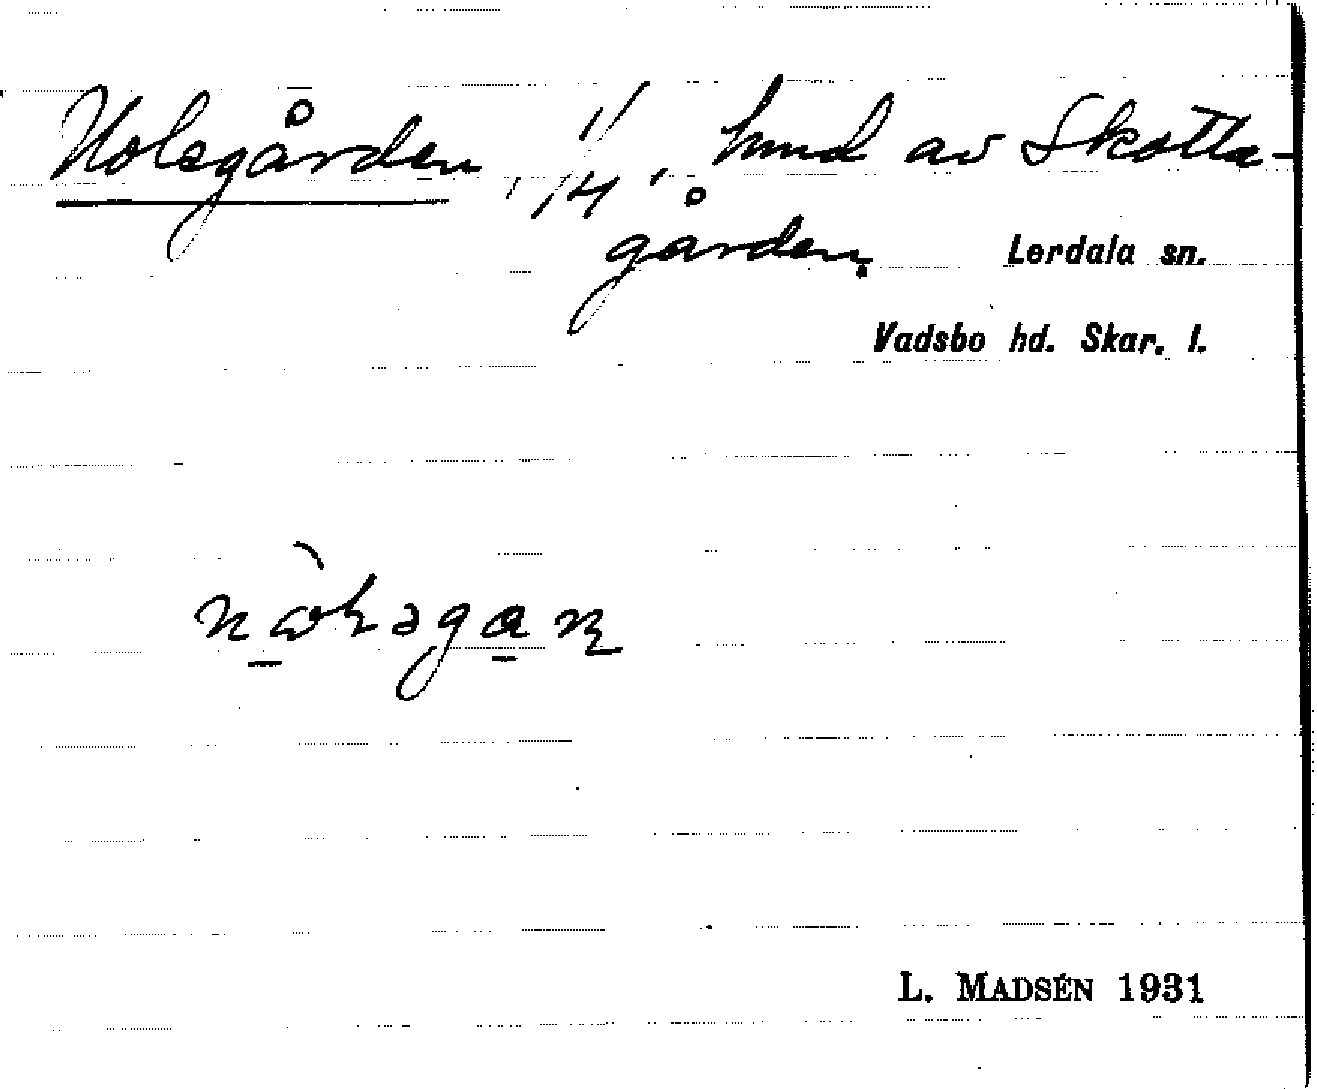 Nolsgården, 1/4, hmd av Skotta-
gården.
Lerdala sn.
Vadsbo hd. Skar. l.
L. MADSÉN 1931